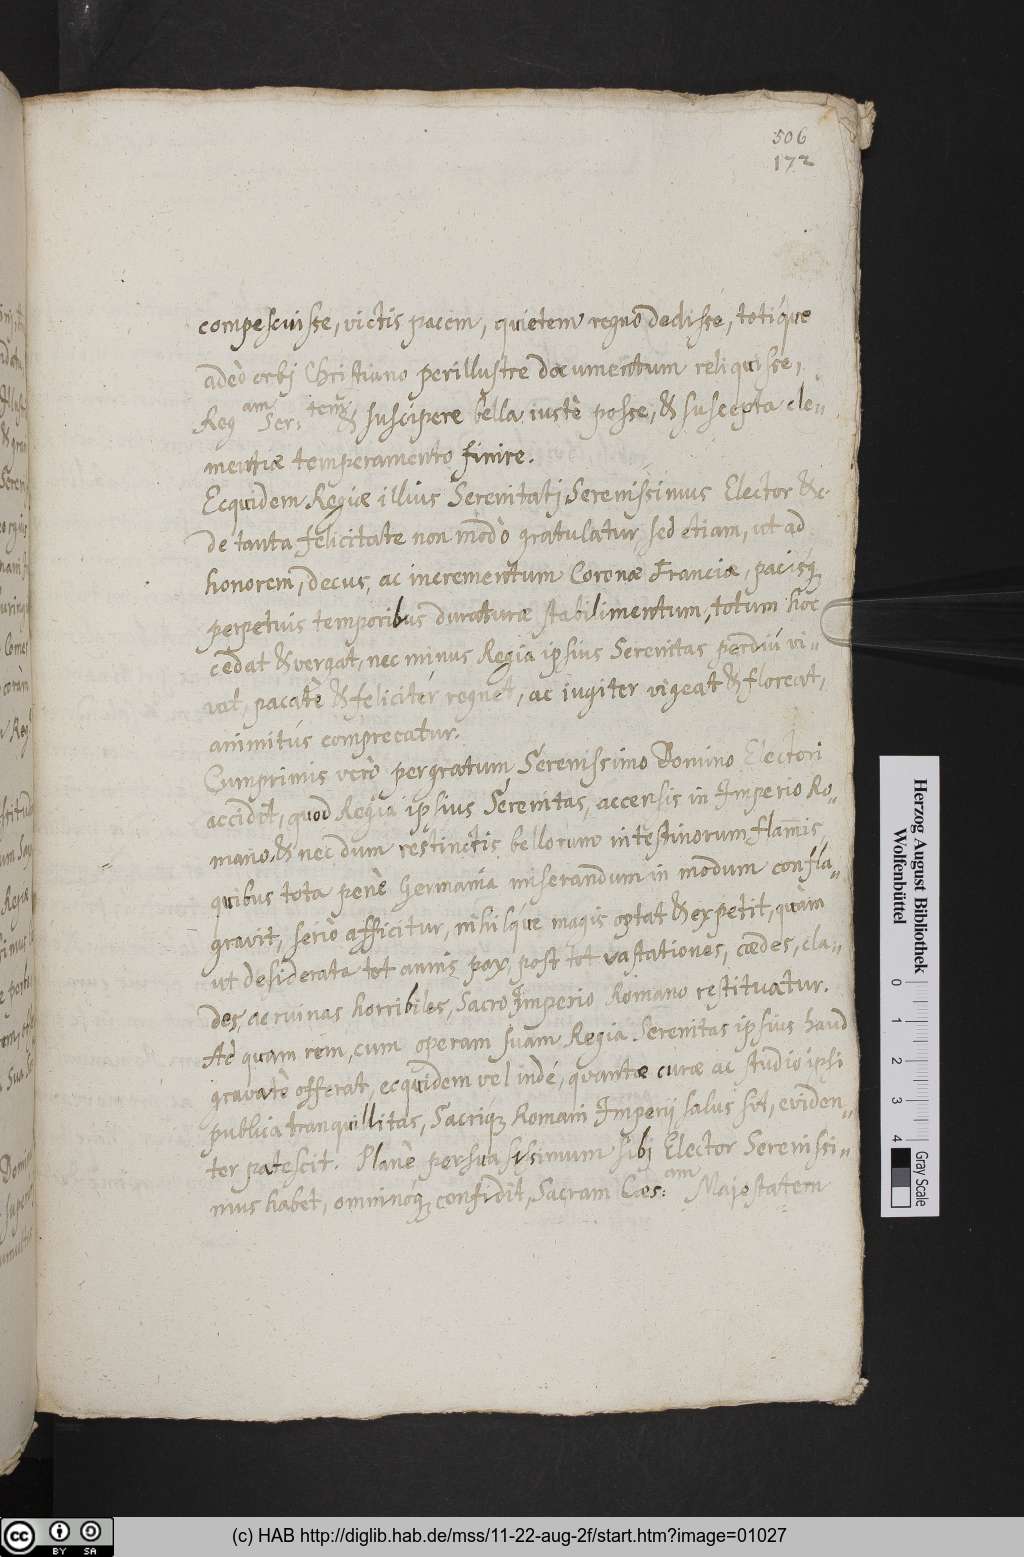 506
172
compescuisse, victis pacem, quietem regno dedisse, totíque
adeò orbj Christiano perillustre documentum reliquisse,
Regam Ser:tem & suscipere bella iustè posse, & suscepta cle„
mentiæ temperamento finire.
Ecquidem Regiæ illius Serenitatj Serenissimus Elector &c.
de tanta felicitate non modò gratulatur, sed etiam, ut ad
honorem, decus, ac incrementum Coronæ Franciæ, pacisq;
perpetuis temporibus duraturæ stabilimentum, totum hoc
cedat & vergat, nec minus Regia ipsius Serenitas perdiù vi„
vat, pacatè & felicitér regnet, ac iugiter vigeat & floreat,
animitùs comprecatur.
Cumprimis verò pergratum Serenissimo Domino Electori
accidit, quod Regia ipsius Serenitas, accensis in Imperio Ro„
mano, & nec dum restinctis bellorum intestinorum flam̄is
quibus tota penè Germania miserandum in modum confla„
gravit, seriò afficitur, nihilque magis optat & expetit, quàm
ut desiderata tot annis pax, post tot vastationes, cædes, cla„
des, ac ruinas horribiles, Sacro Imperio Romano restituatur.
Ad quam rem, cum operam suam Regia Serenitas ipsius haud
gravatè offerat, ecquidem vel indé, quantæ curæ ac studio ipsi
publica tranquillitas, Sacriq; Romani Imperij salus sit, eviden„
ter patescit. Planè persuasissimum sibj Elector Serenissi„
mus habet, omninóq; confidit, Sacram Cæs:am Majestatem
Herzog August Bibliothek
Wolfenbüttel
0 1 2 3 4
Gray Scale
cc BY SA
(c) HAB http://diglib.hab.de/mss/11-22-aug-2f/start.htm?image=01027